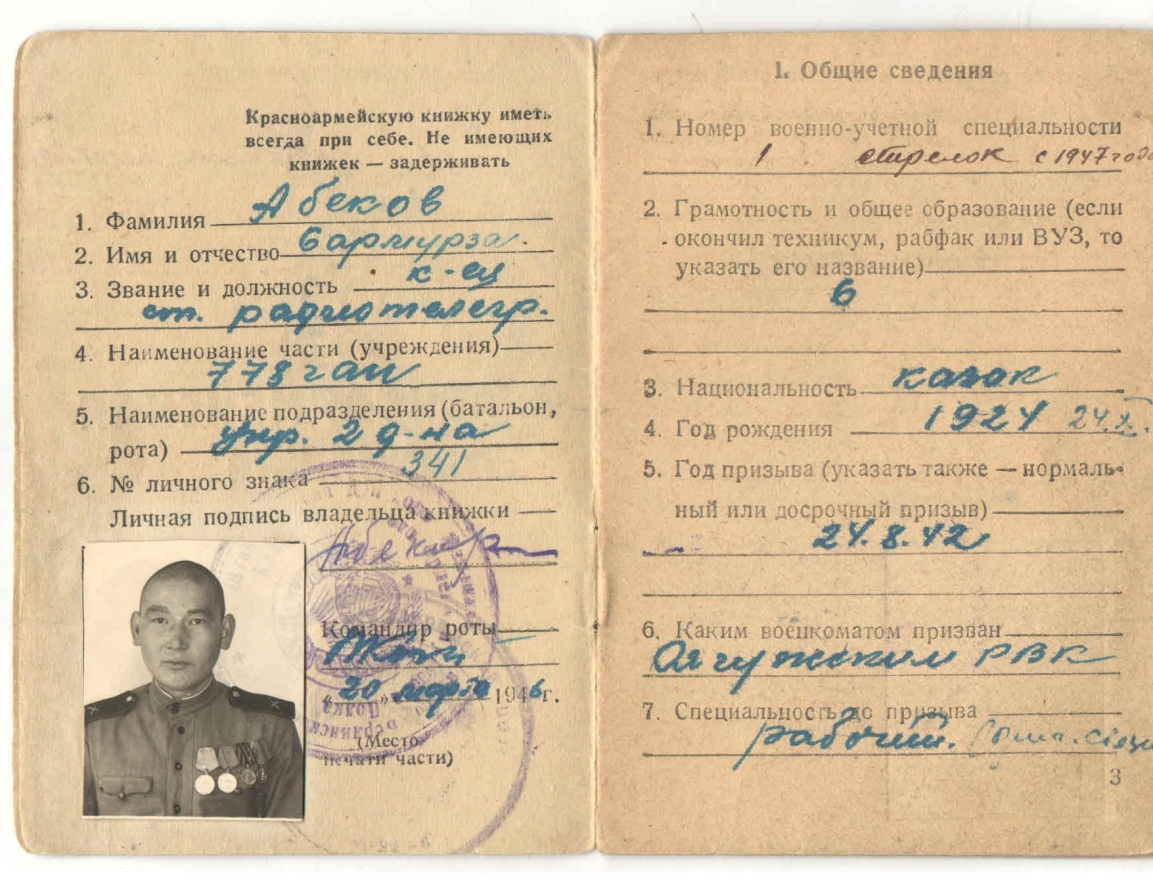 Красноармейскую книжку иметь
всегда при себе. Не имеющих
книжек — задерживать
1. Фамилия Абеков
2. Имя и отчество Бармурза.
3. Звание и должность к-ец
ст. радиотелегр.
4. Наименование части (учреждения)
778 гап
5. Наименование подразделения (батальон,
рота) упр. 2 д-на
6. № личного знака 341
Личная подпись владельца книжки
Командир роты
„20" марта 1946 г.
(Место
печати части)
1. Общие сведения
1. Номер военно-учетной специальности
1 стрелок с 1947 года
2. Грамотность и общее образование (если
окончил техникум, рабфак или ВУЗ, то
указать его название)
6
3. Национальность казак
4. Год рождения 1924 24.XI.
5. Год призыва (указать также — нормаль-
ный или досрочный призыв)
24.8.42
6. Каким военкоматом призван
РВК
7. Специальность до призыва
рабочий.
3